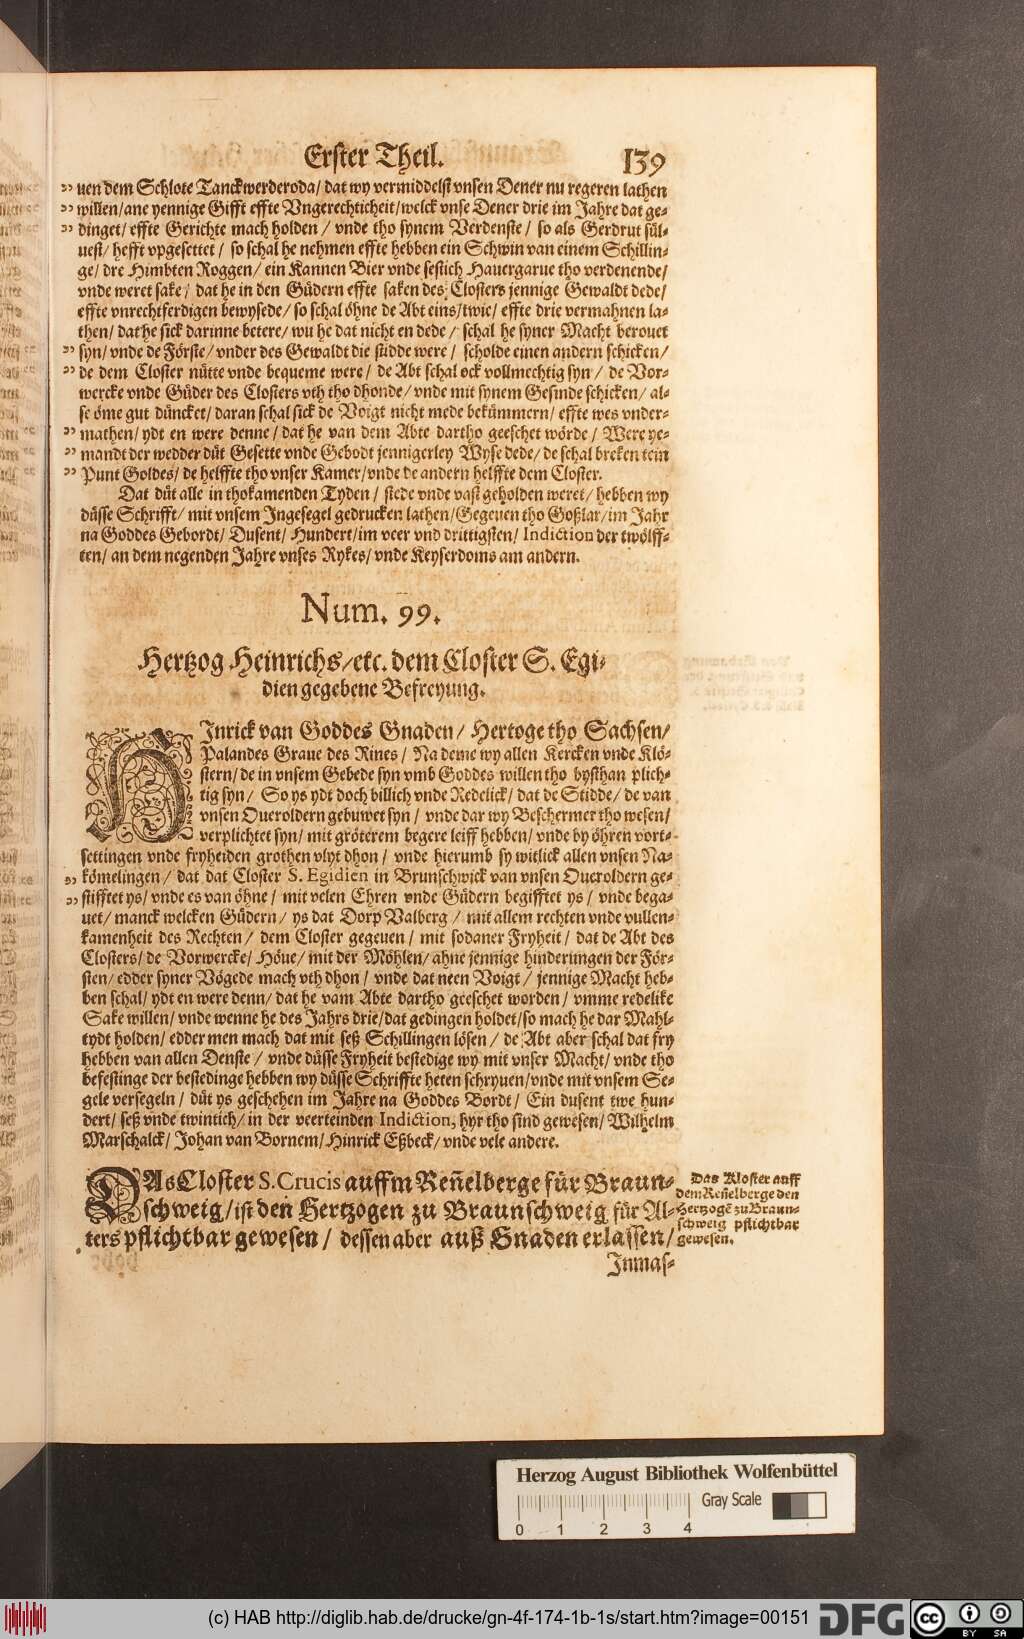 Erster Theil. 139
uen dem Schlote Tanckwerderoda/ dat wy vermiddelst vnsen Dener nu regeren lathen
willen/ane yennige Gifft effte Vngerechticheit/welck vnse Dener drie im Jahre dat ge-
dinget/ effte Gerichte mach holden / vnde tho synem Verdenste / so als Gerdrut sül-
uest/ hefft vpgesettet / so schal he nehmen effte hebben ein Schwin van einem Schillin-
ge/ dre Himbten Roggen/ ein Kannen Bier vnde sestich Hauergarue tho verdenende/
vnde weret sake/ dat he in den Güdern effte saken des Closters jennige Gewaldt dede/
effte vnrechtferdigen bewysede/ so schal öhne de Abt eins/twie/ effte drie vermahnen la-
then/ dat he sick darinne betere/ wu he dat nicht en dede / schal he syner Macht berouet
syn/ vnde de Förste/ vnder des Gewaldt die südde were / scholde einen andern schicken/
de dem Closter nütte vnde bequeme were/ de Abt schal ock vollmechtig syn / de Vor-
wercke vnde Güder des Closters vth tho dhonde/ vnde mit synem Gesinde schicken/ al-
se öme gut düncket/ daran schal sick de Voigt nicht mede bekümmern/ effte wes vnder-
mathen/ ydt en were denne / dat he van dem Abte dartho geeschet wörde / Were ye-
mandt der wedder düt Gesette vnde Gebodt jennigerley Wyse dede/ de schal breken tein
Punt Goldes/ de helffte tho vnser Kamer/vnde de andern helffte dem Closter.
Dat düt alle in thokamenden Tyden / stede vnde vast geholden weret/ hebben wy
düsse Schrifft/ mit vnsem Ingesegel gedrucken lathen/Gegeuen tho Goßlar/im Jahr
na Goddes Gebordt/ Dusent/ Hundert/im veer vnd drittigsten/ Indiction der twölff-
ten/ an dem negenden Jahre vnses Rykes/ vnde Keyserdoms am andern.
Num. 99.
Hertzog Heinrichs/etc. dem Closter S. Egi-
dien gegebene Befreyung.
HInrick van Goddes Gnaden/ Hertoge tho Sachsen/
Palandes Graue des Rines / Na deme wy allen Kercken vnde Klö-
stern/ de in vnsem Gebede syn vmb Goddes willen tho bysthan plich-
tig syn/ So ys ydt doch billich vnde Redelick/ dat de Stidde/ de van
vnsen Oueroldern gebuwet syn / vnde dar wy Beschermer tho wesen/
verplichtet syn/ mit gröterem begere leiff hebben/ vnde by öhren vort-
settingen vnde fryheiden grothen vlyt dhon / vnde hierumb sy witlick allen vnsen Na-
kömelingen / dat dat Closter S. Egidien in Brunschwick van vnsen Oueroldern ge-
stifftet ys/ vnde es van öhne / mit velen Ehren vnde Güdern begifftet ys / vnde bega-
uet/ manck welcken Güdern/ ys dat Dorp Valberg / mit allem rechten vnde vullen-
kamenheit des Rechten/ dem Closter gegeuen / mit sodaner Fryheit / dat de Abt des
Closters/ de Vorwercke/ Höue/ mit der Möhlen/ ahne jennige hinderungen der För-
sten/ edder syner Vögede mach vth dhon / vnde dat neen Voigt / jennige Macht heb-
ben schal/ ydt en were denn/ dat he vam Abte dartho geeschet worden / vmme redelike
Sake willen/ vnde wenne he des Jahrs drie/dat gedingen holdet/so mach he dar Mahl-
tydt holden/ edder men mach dat mit seß Schillingen lösen / de Abt aber schal dat fry
hebben van allen Denste / vnde düsse Fryheit bestedige wy mit vnser Macht/ vnde tho
befestinge der bestedinge hebben wy düsse Schriffte heten schryuen/vnde mit vnsem Se-
gele versegeln / düt ys geschehen im Jahre na Goddes Bordt / Ein dusent twe hun-
dert/ seß vnde twintich/ in der veerteinden Indiction, hyr tho sind gewesen/ Wilhelm
Marschalck/ Johan van Bornem/ Hinrick Eßbeck/ vnde vele andere.
DAs Closter S. Crucis auffm Reñelberge für Braun-
schweig/ist den Hertzogen zu Braunschweig für Al-
ters pflichtbar gewesen / dessen aber auß Gnaden erlassen/
Das Kloster auff
dem Reñelberge den
Hertzogẽ zu Braun-
schweig pflichtbar
gewesen.
Inmas-
Herzog August Bibliothek Wolfenbüttel
Gray Scale
0 1 2 3 4
(c) HAB http://diglib.hab.de/drucke/gn-4f-174-1b-1s/start.htm?image=00151
DFG
cc BY SA